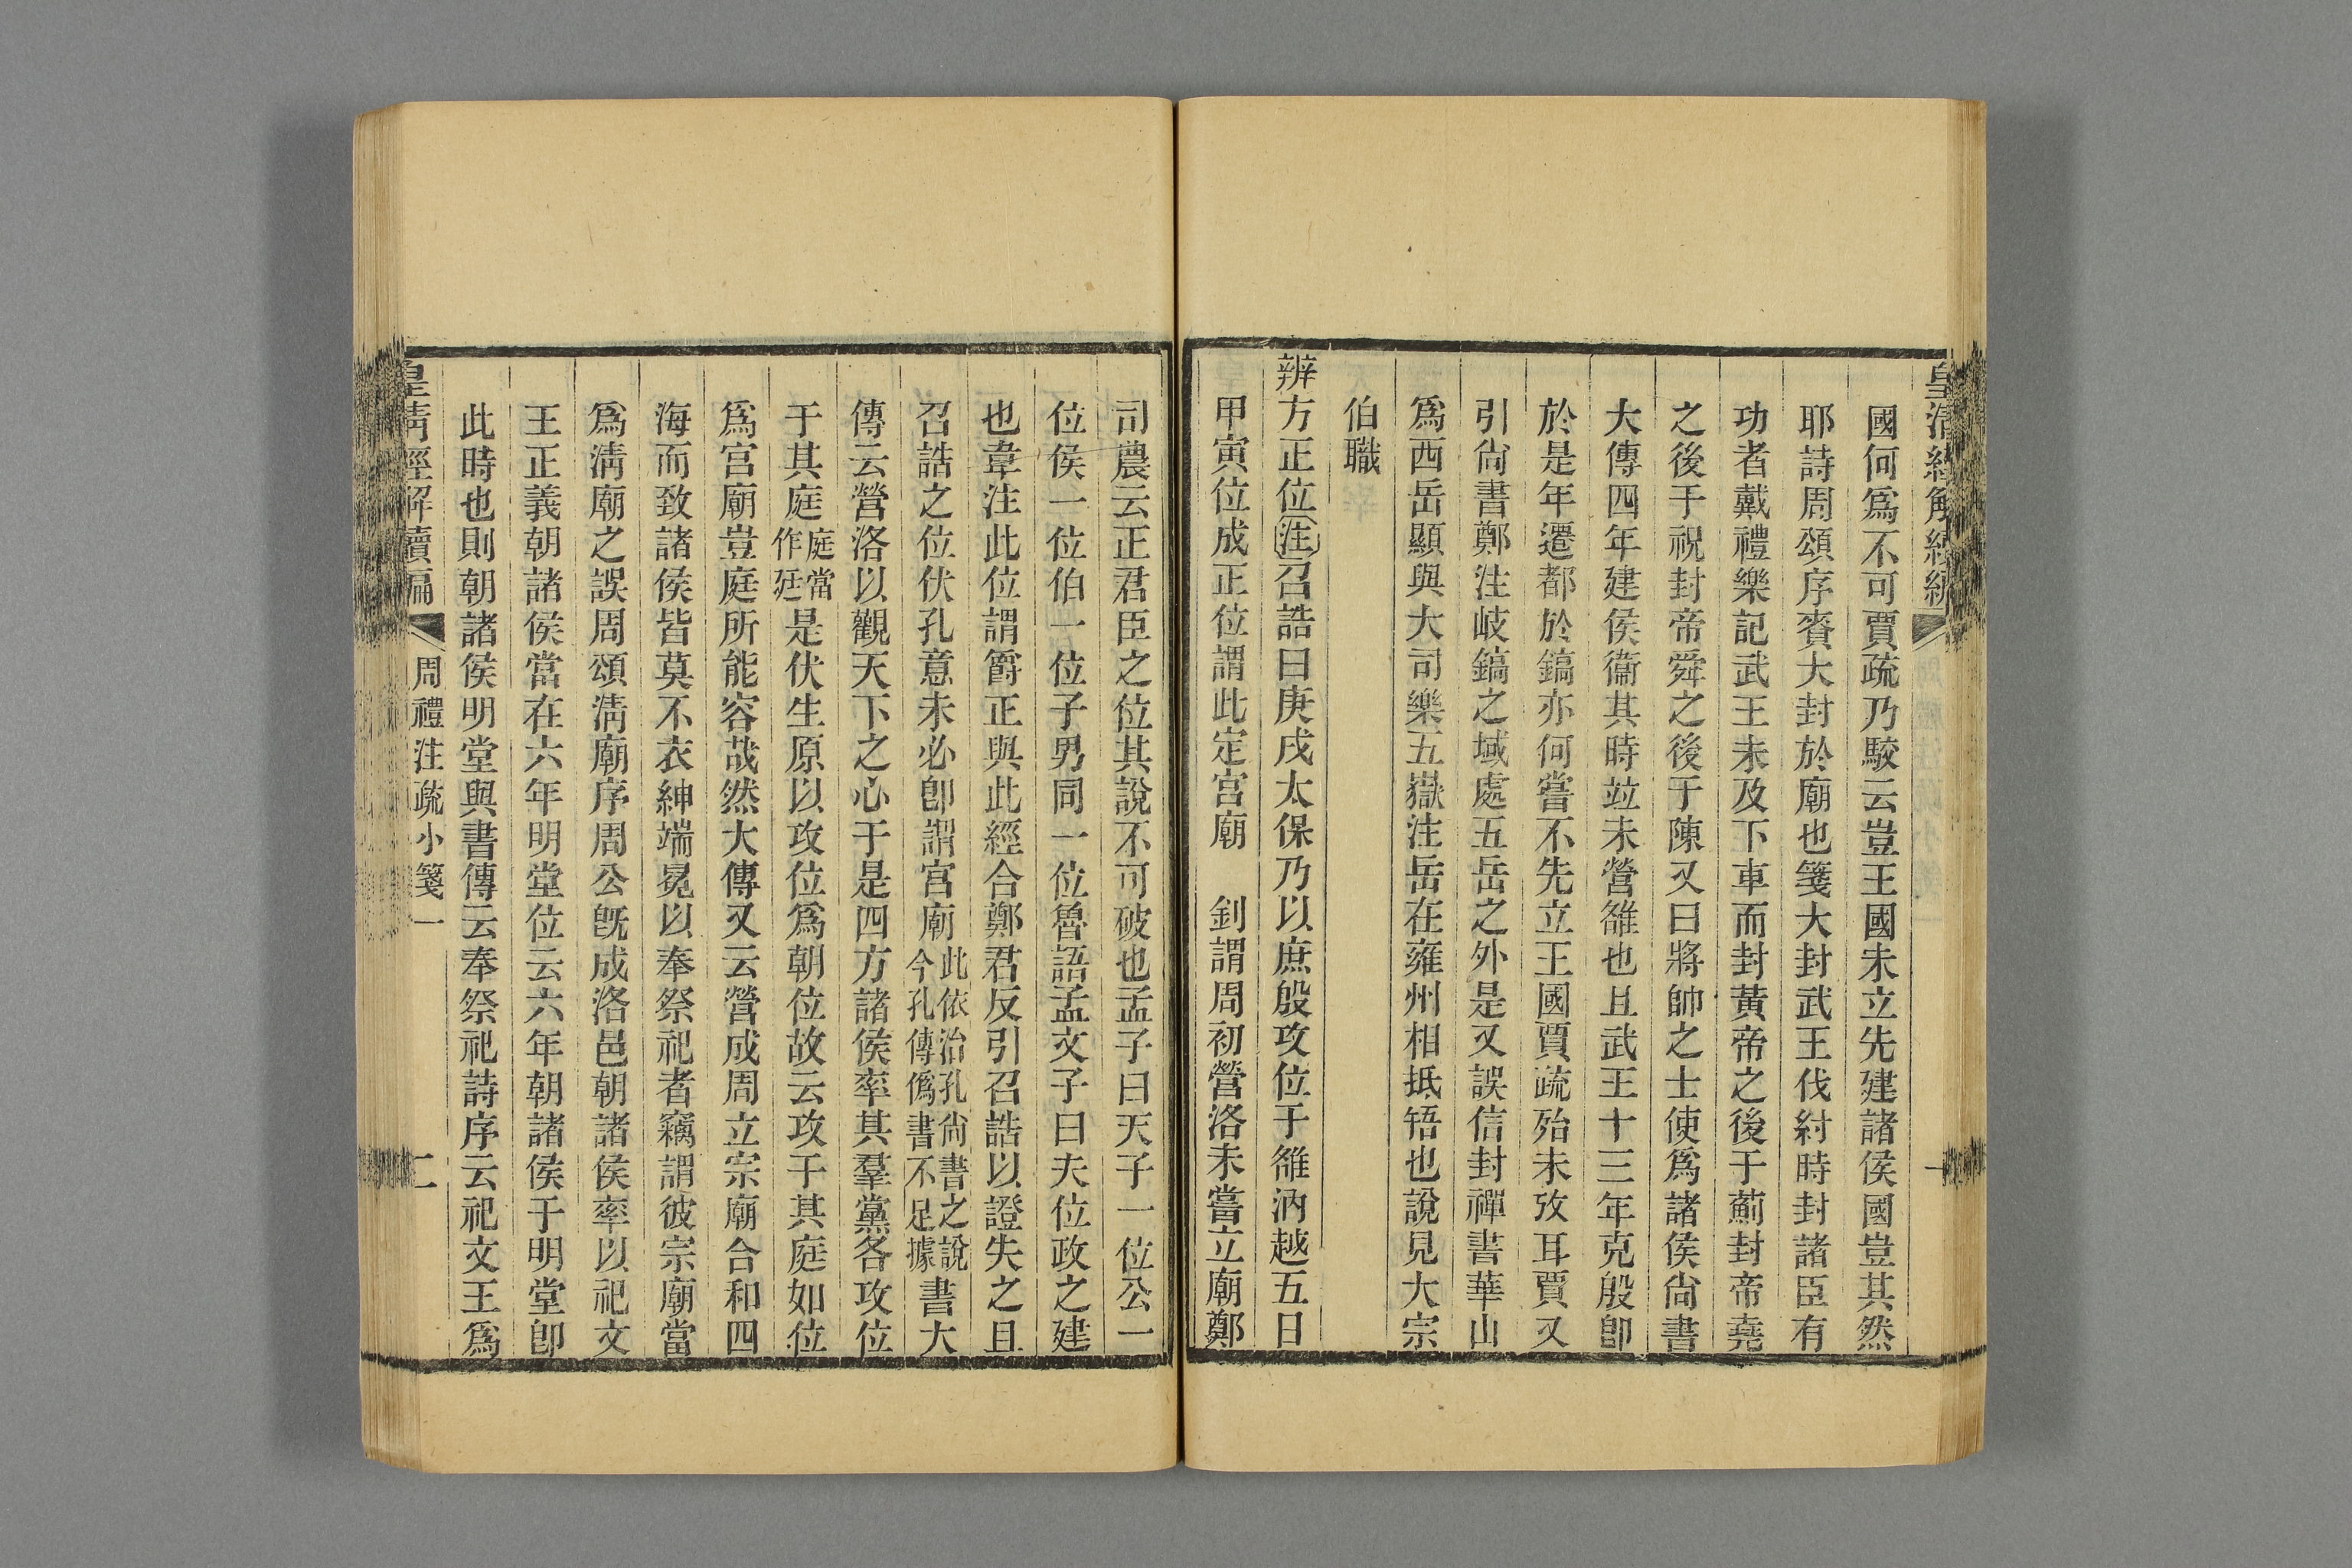 皇清經解續編
國何爲不可賈疏乃駮云豈王國未立先建諸侯國豈其然
耶詩周頌序賚大封於廟也箋大封武王伐紂時封諸臣有
功者戴禮樂記武王未及下車而封黃帝之後于薊封帝堯
之後于祝封帝舜之後于陳又曰將帥之士使爲諸侯尙書
大傳四年建侯衞其時竝未營雒也且武王十三年克殷卽
於是年遷都於鎬亦何嘗不先立王國賈疏殆未攷耳賈又
引尙書鄭注岐鎬之域處五岳之外是又誤信封禪書華山
爲西岳顯與大司樂五嶽注岳在雍州相抵牾也說見大宗
伯職
辨方正位注召誥曰庚戌太保乃以庶殷攻位于雒汭越五日
甲寅位成正位謂此定宮廟 釗謂周初營洛未嘗立廟鄭
司農云正君臣之位其說不可破也孟子曰天子一位公一
位侯一位伯一位子男同一位魯語孟文子曰夫位政之建
也韋注此位謂爵正與此經合鄭君反引召誥以證失之且
召誥之位伏孔意未必卽謂宮廟此依治孔尙書之說今孔傳僞書不足據書大
傳云營洛以觀天下之心于是四方諸侯率其羣黨各攻位
于其庭庭當作廷是伏生原以攻位爲朝位故云攻于其庭如位
爲宮廟豈庭所能容哉然大傳又云營成周立宗廟合和四
海而致諸侯皆莫不衣紳端冕以奉祭祀者竊謂彼宗廟當
爲淸廟之誤周頌淸廟序周公旣成洛邑朝諸侯率以祀文
王正義朝諸侯當在六年明堂位云六年朝諸侯于明堂卽
此時也則朝諸侯明堂與書傳云奉祭祀詩序云祀文王爲
皇淸經解續編 周禮注疏小箋一 二